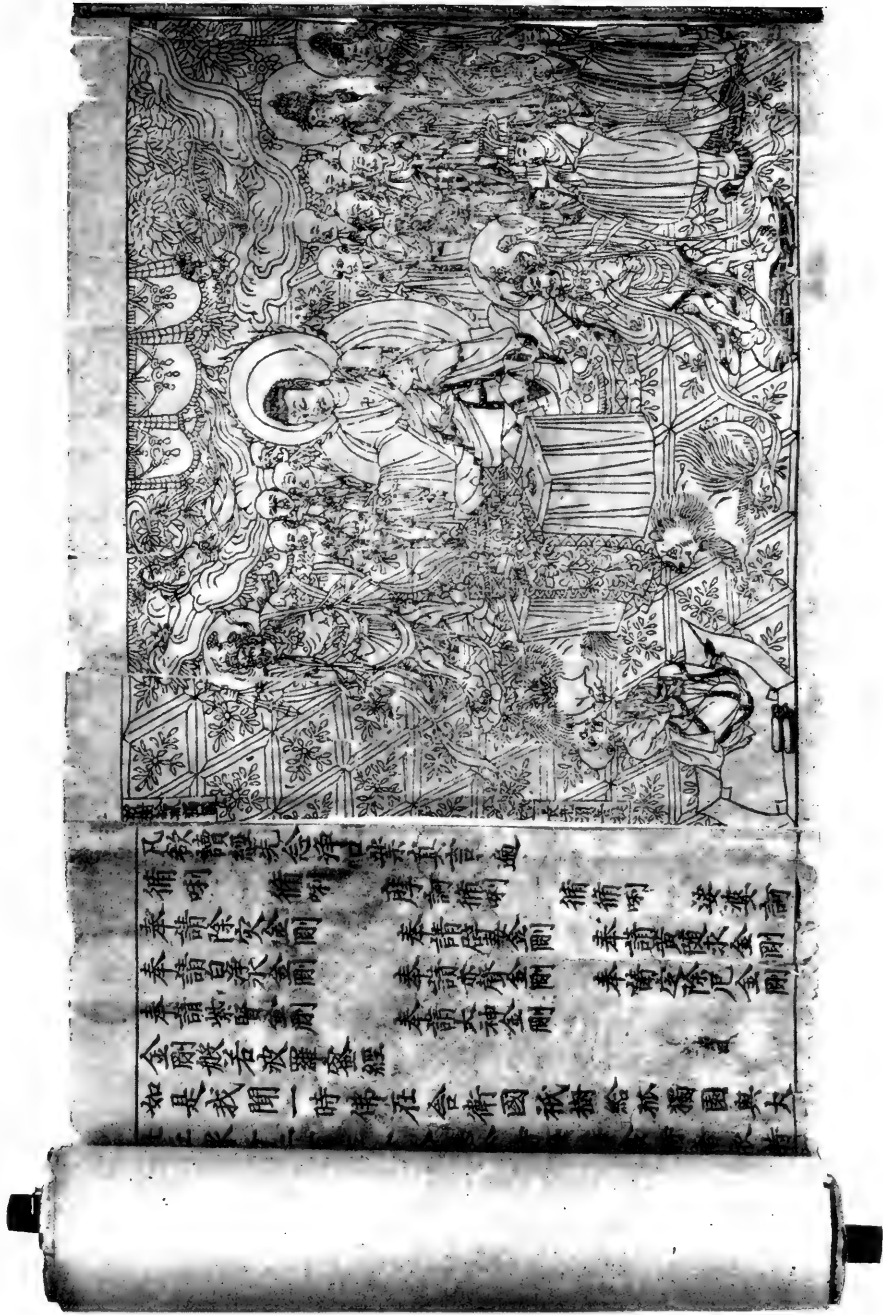 凡欲讀經先念淨口業真言遍
脩唎 脩唎 摩訶脩唎 脩脩唎 娑婆訶
奉請除災金剛 奉請辟毒金剛 奉請黃隨求金剛
奉請白淨水金剛 奉請赤聲金剛 奉請定除厄金剛
奉請紫賢金剛 奉請大神金剛
金剛般若波羅蜜經
如是我聞一時佛在舍衛國祇樹給孤獨園與大